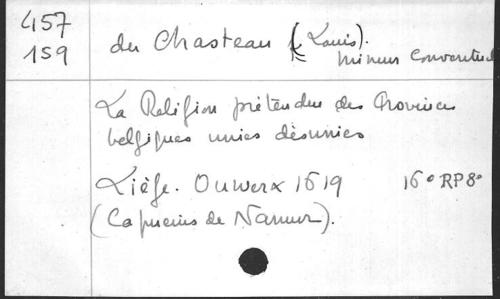 457
159
du Chasteau (Louis).
mineur conventuel
La Religion prétendue des Provinces
belgiques unies désunies
Liège. Ouwerx 1619 16° RP8°
(Capucins de Namur).